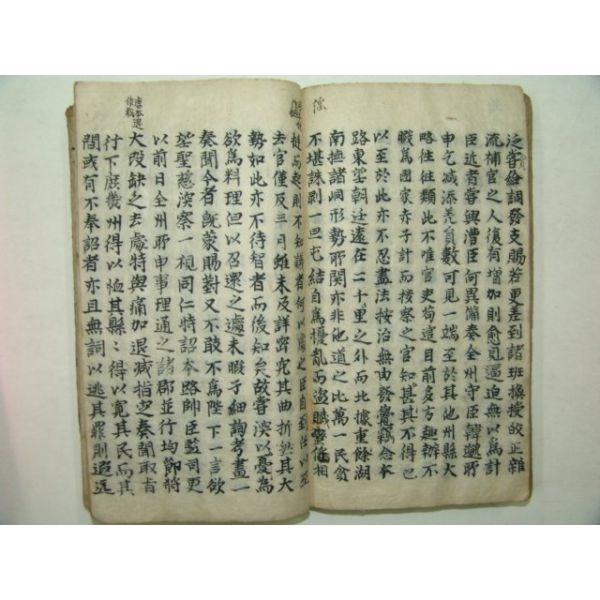 泛常綸調發支賜若更差到諸班換授的正雜
流補官之人復有增加則愈見逼迫無以爲計
臣近者嘗與漕臣何異備奏全州守臣韓邈所
申乞减添差員數可見一端至於其他州縣大
略往往類此不唯官吏苟逭目前多方趣辦不
暇爲國家赤子計而按察之官知其不得已
以至於此亦不忍盡法按治無由發覺竊念本
路東望朝廷遠在二十里之外而北據重餘湖
南撫諸峒形勢所關亦非他道之比萬一民貧
不堪誅剝一旦屯結自爲擾亂而盜賊蠻徭相
挺而起則不知議者何以處之臣自到任以至
去官僅及三月雖未及詳密究其曲折然其大
勢如此亦不待智者而後知矣故嘗深以憂爲
欲爲料理但以召還之遽未暇子細詢考畫一
奏聞今者旣蒙賜對又不敢不爲陛下一言欲
望聖慈深察一視同仁特詔本路帥臣監司更
以前日全州所申事理通之諸郡並行均節將
大段缺乏去處特與痛加退减指定奏聞取旨
行下庶幾州得以恤其縣縣得以寬其民而其
間或有不奉詔者亦且無詞以逃其罪則遐遠